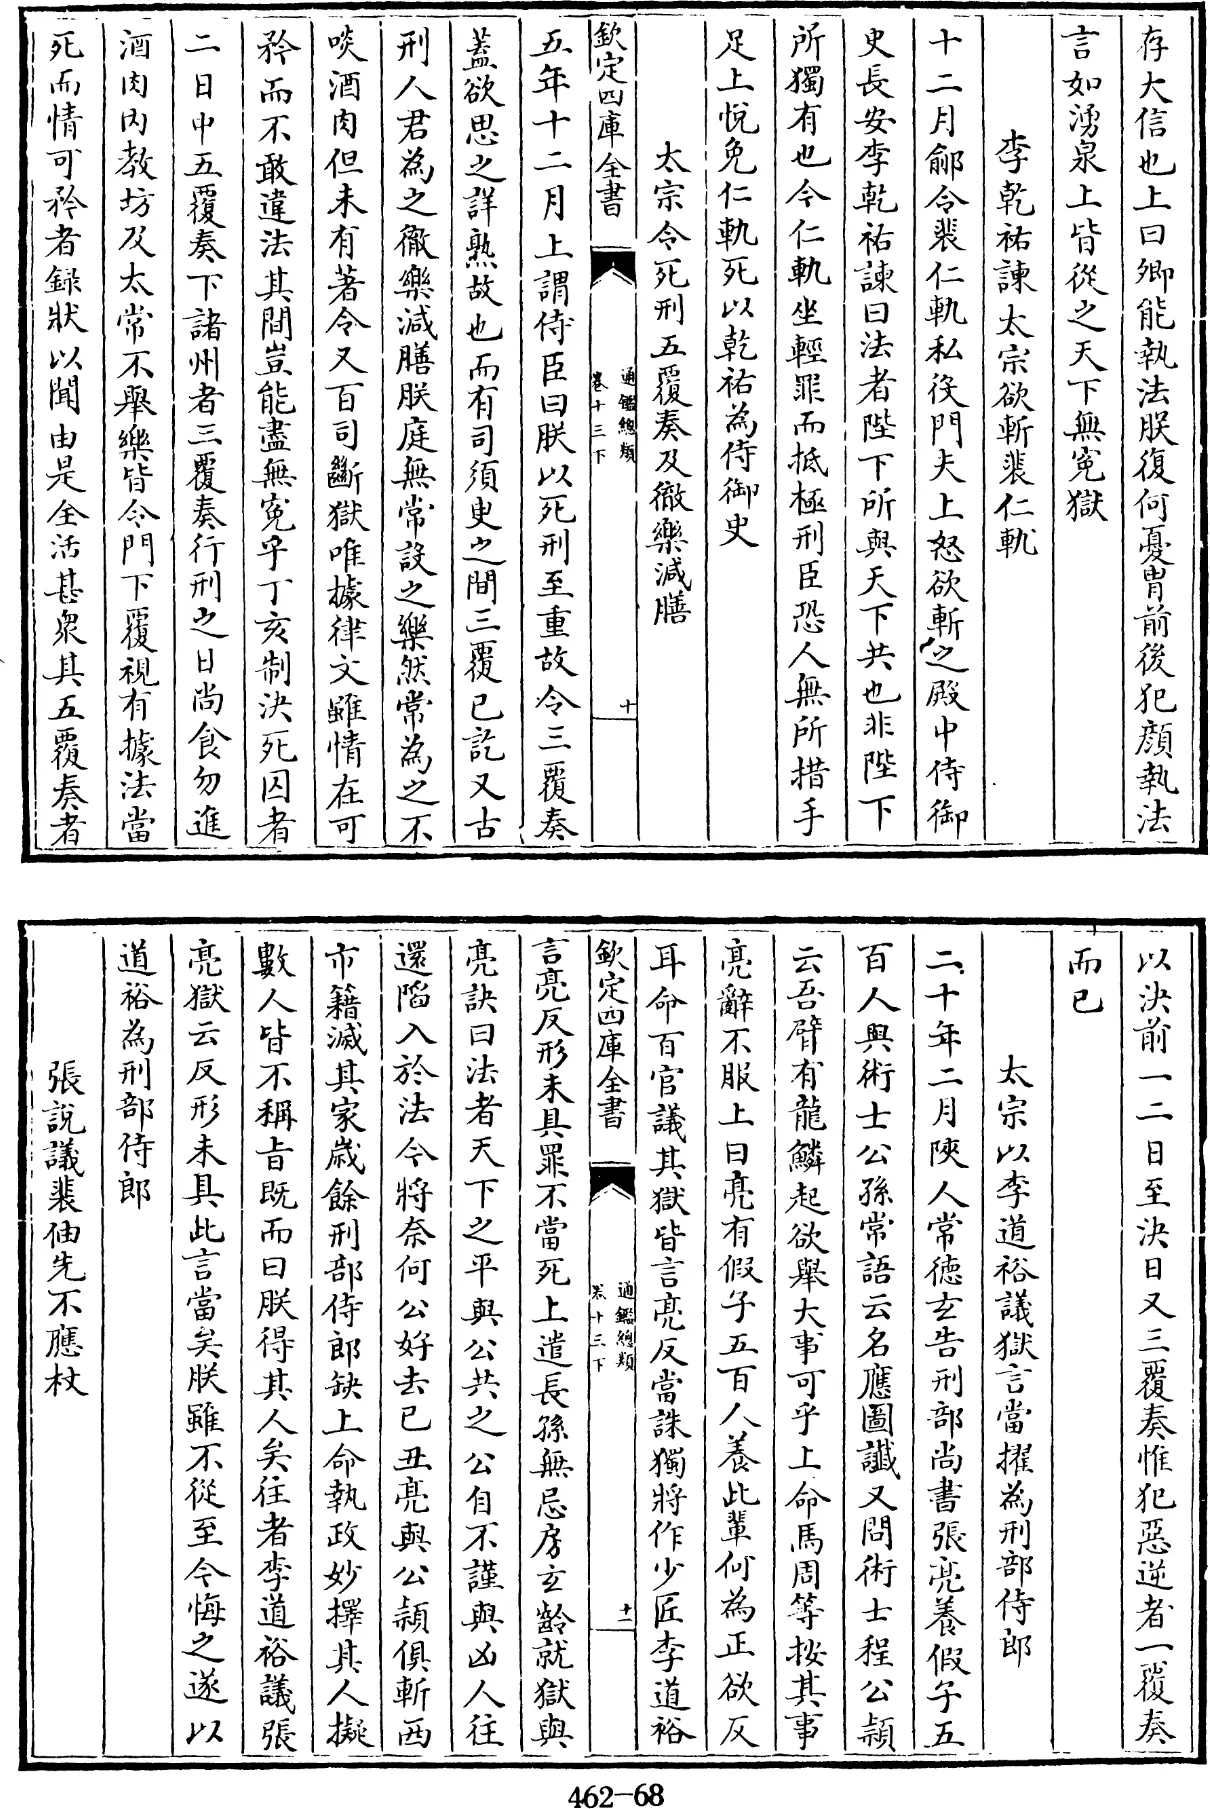 存大信也上曰卿能執法朕復何憂胄前後犯顔執法
言如湧泉上皆從之天下無寃獄
李乾祐諫太宗欲斬裴仁軌
十二月鄃令裴仁軌私役門夫上怒欲斬之殿中侍御
史長安李乾祐諫曰法者陛下所與天下共也非陛下
所獨有也今仁軌坐輕罪而抵極刑臣恐人無所措手
足上悅免仁軌死以乾祐為侍御史
太宗令死刑五覆奏及徹樂減膳
欽定四庫全書
通鑑總類
卷十三下
十
五年十二月上謂侍臣曰朕以死刑至重故令三覆奏
蓋欲思之詳熟故也而有司須臾之間三覆已訖又古
刑人君為之徹樂減膳朕庭無常設之樂然常為之不
啖酒肉但未有著令又百司斷獄唯據律文雖情在可
矜而不敢違法其間豈能盡無寃乎丁亥制決死囚者
二日中五覆奏下諸州者三覆奏行刑之日尚食勿進
酒肉内教坊及太常不舉樂皆令門下覆視有據法當
死而情可矜者錄狀以聞由是全活甚衆其五覆奏者
以決前一二日至決日又三覆奏惟犯惡逆者一覆奏
而已
太宗以李道裕議獄言當擢為刑部侍郎
二十年二月陝人常德玄告刑部尚書張亮養假子五
百人與術士公孫常語云名應圖讖又問術士程公頴
云吾臂有龍鱗起欲舉大事可乎上命馬周等按其事
亮辭不服上曰亮有假子五百人養此輩何為正欲反
耳命百官議其獄皆言亮反當誅獨將作少匠李道裕
欽定四庫全書
通鑑總類
卷十三下
十一
言亮反形未具罪不當死上遣長孫無忌房玄齡就獄與
亮訣曰法者天下之平與公共之公自不謹與凶人往
還陷入於法今將奈何公好去己丑亮與公頴俱斬西
市籍滅其家歲餘刑部侍郎缺上命執政妙擇其人擬
數人皆不稱旨既而曰朕得其人矣往者李道裕議張
亮獄云反形未具此言當矣朕雖不從至今悔之遂以
道裕為刑部侍郎
張說議裴伷先不應杖
462-68